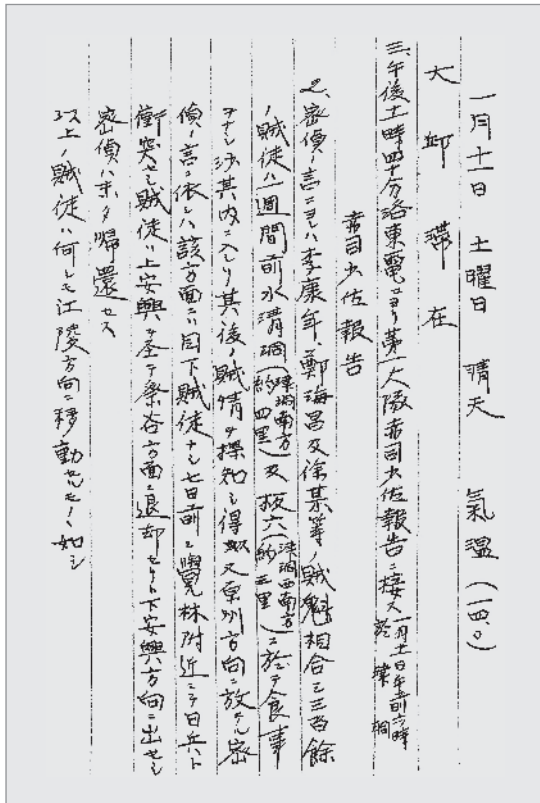 一月十一日 土曜日 晴天 氣温(一四、〇)
大 邱 滯 在
三、午後十一時四十分洛東電ニヨリ第一大隊赤司少佐報告ニ接ス 一月十一日午前六時 於 桐
赤司少佐報告
密偵ノ言ニヨレハ李康年、鄭海昌及徐某等ノ賊魁相合シ三百餘
ノ賊徒ハ一週間前水清洞(南方約四里)及板六(西南方約三里)ニ於テ食事
ヲナシ 其内ニ入レリ其後ノ賊情ヲ探知シ得 又原州方向ニ放テル密
偵ノ言ニ依レハ該方面ニハ目下賊徒ナシ七日前ニ覺林附近ニテ日兵ト
衝突セシ賊徒ハ上安興ヲ 方面ニ退却セリト下安興方向ニ出セシ
密偵ハ未タ帰還セス
以上ノ賊徒ハ何レモ江陵方向ニ移動セルモノヽ如シ